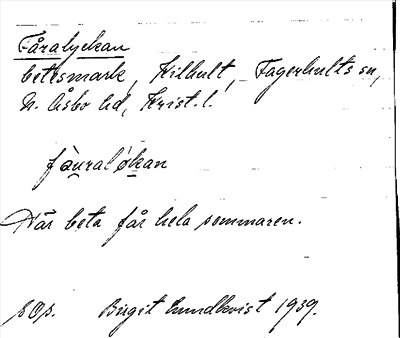 Fåralyckan
betesmark, Kilhult, Fagerhults sn,
N. Åsbo hd, Krist. l.
fàuraløkan
Där beta får hela sommaren.
Birgit Lundkvist 1939.